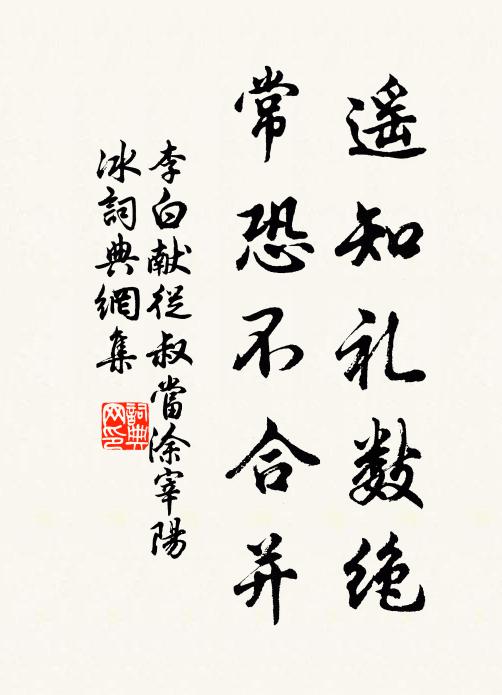 遥知礼数绝
常恐不合并
李白献從叔當涂宰陽
冰詞典網集
詞典
网印